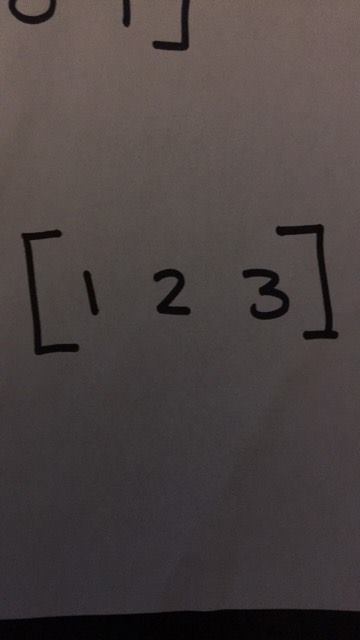 [1 2 3]